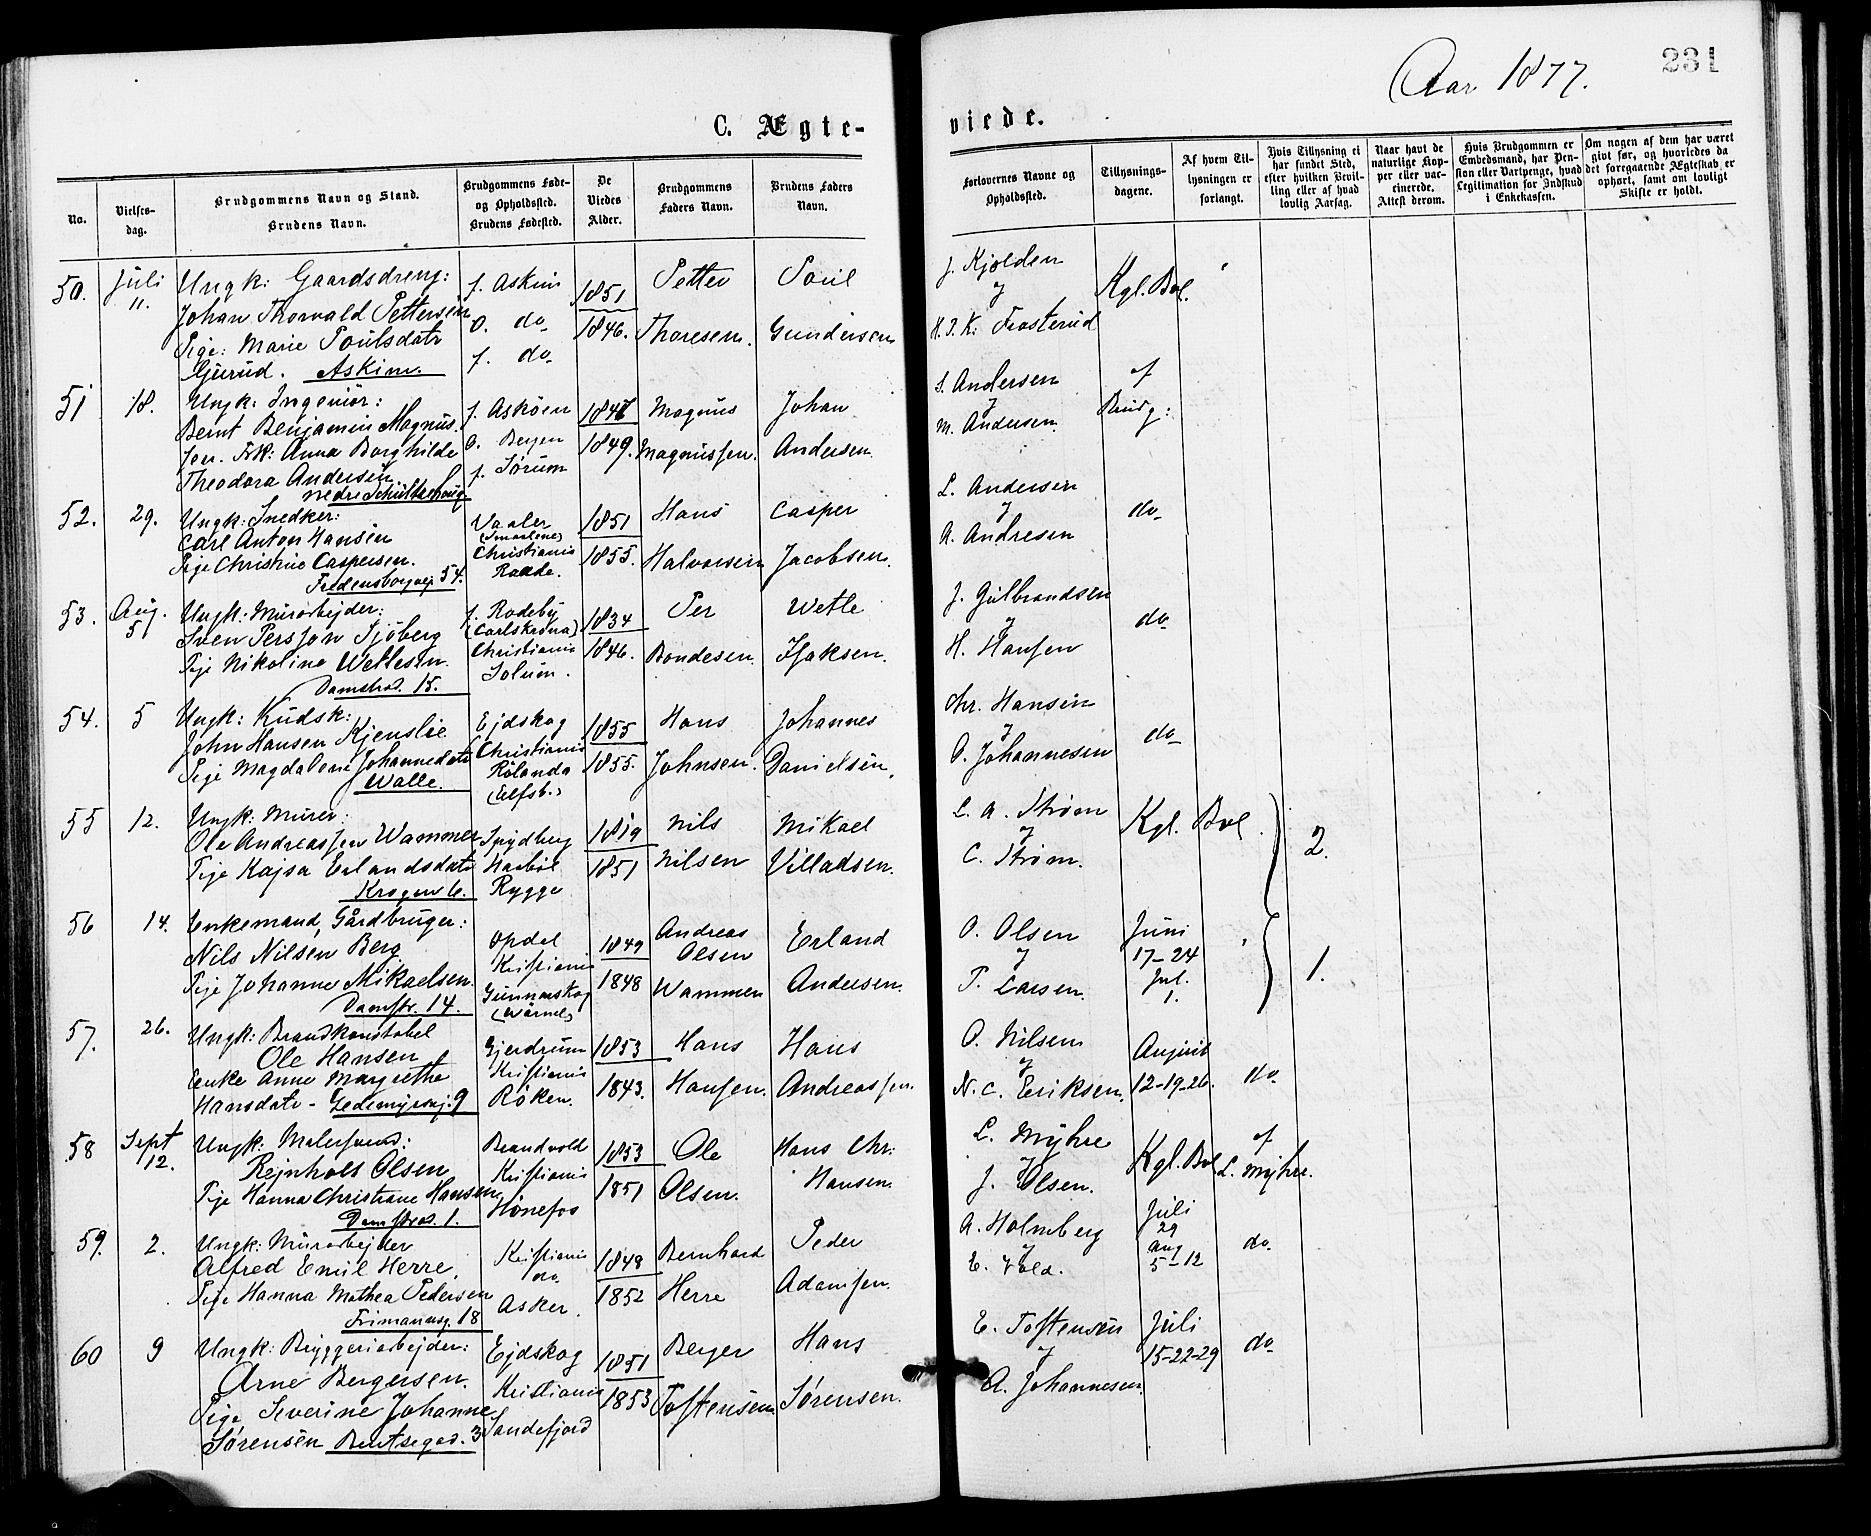 Aar 1877.
231
C. Ægte-
viede.
No.
Vielses-
dag.
Brudgommens Navn og Stand.
Brudens Navn.
Brudgommens Føde-
og Opholdssted.
Brudens Fødested.
De
Viedes
Alder.
Brudgommens
Faders Navn.
Brudens Faders
Navn.
Forlovernes Navne og
Opholdssted.
Tillysnings-
dagene.
Af hvem Til-
lysningen er
forlangt.
Hvis Tillysning ei
har fundet Sted,
efter hvilken Bevil-
ling eller af hvad
lovlig Aarsag.
Naar havt de
naturlige Kop-
per eller vac-
cinerede.
Attest derom.
Hvis Brudgommen er
Embedsmand, har Pen-
sion eller Vartpenge, hvad
Legitimation for Indskud
i Enkekassen.
Om nogen af dem har været
givt før, og hvorledes da
det foregaaende Ægteskab er
ophørt, samt om lovligt
Skifte er holdt.
50. Juli 11. Ungk: Gaardsdreng: f. Askim 1851 Petter Poul J. Kjolden Kgl. Bvl.
Johan Thorvald Pettersen o. do 1846. Thoresen. Gundersen & H. I. K. Frosterud
Pige: Marie Poulsdatr f. do
Gjurud. Askim.
51 18. Ungk: Ingeniør: f. Askøen 1847 Magnus Johan S. Andersen af
Bernt Benjamin Magnus- o. Bergen 1849. Magnussen. Andersen & M. Andersen. Brudg:
sen. Frk: Anna Borghilde f. Sørum
Theodora Andersen
nedre
52. 29. Ungk: Snedker: Vaaler 1851 Hans Casper L. Andersen do
Carl Anton Hansen (Smaalene) 1855. Halvorsen Jacobsen. & A. Andresen
Pige Christine Caspersen. Christiania
Fredensborgvej. 54. Raade.
53. Aug. 5 Ungk: Murarbejder: f. Rodeby 1834 Per Wetle J. Gulbrandsen do
Sven Persson Sjöberg (Carlskrona) 1846. Bondesen. Isaksen. & H. Hansen
Pige Nikoline Wetlesen. Christiania
Damstræd. 15. Solum.
54. 5 Ungk: Kudsk: Ejdskog 1855 Hans Johannes Chr. Hansen do
John Hansen Kjenslie Christiania 1855. Johnsen. Danielsen. & O. Johannesen
Pige Magdalene Johannedatr Rölanda
Walle. (Elfsb.)
55 12. Ungk: Murer: 1819 Nils Mikael L. A. Strøm Kgl. Bvl. 2.
Ole Andreassen Wammer Spydberg 1851 Nilsen Villadsen. & C. Strøm.
Pige Kajsa Erlandsdatr Haabøl
Krogen 6. Rygge
56 14. Enkemand, Gårdbruger: Opdal 1849 Andreas Erland O. Olsen Juni 1.
Nils Nilsen Berg Kristiania 1848 Olsen Andersen. & P. Larsen. 17-24
Pige Johanne Mikaelsen. Gunnarskog Wammen Jul.
Damstr. 14. (Värml) 1.
57. 26. Ungk: Brandkonstabel Gjerdrum 1853 Hans Hans O. Nilsen August do
Ole Hansen Kristiania 1843. Hansen. Andreassen. & N. C. Eriksen. 12-19-26.
Enke Anne Margrethe Röken.
Hansdatr - Gedemyrsvej. 9
58 Sept 12. Ungk: Malersvend: Brandvold 1853 Ole Hans Chr: L. Myhre Kgl. Bvl af
Rejnholt Olsen Kristiania 1851 Olsen. Hansen. & J. Olsen. L. Myhre.
Pige Hanna Christiane Hansen Hönefos
Damstræd. 1.
59. 2. Ungk: Murarbejder Kristiania 1848 Bernhard Peder A. Holmberg Juli 29 do.
Alfred Emil Herre. do 1852 Herre Adamsen. & E. Vold. Aug 5-12
Pige Hanna Mathea Pedersen Asker.
Frimannsg. 18
60 9 Ungk: Bryggeriarbejder: Ejdskog 1851 Berger Hans E. Toftensen Juli do
Arne Bergersen. Kristiania 1853 Toftensen Sørensen. & A. Johannesen. 15-22-29
Pige Severine Johanne Sandefjord
Sørensen Bentsegad. 3